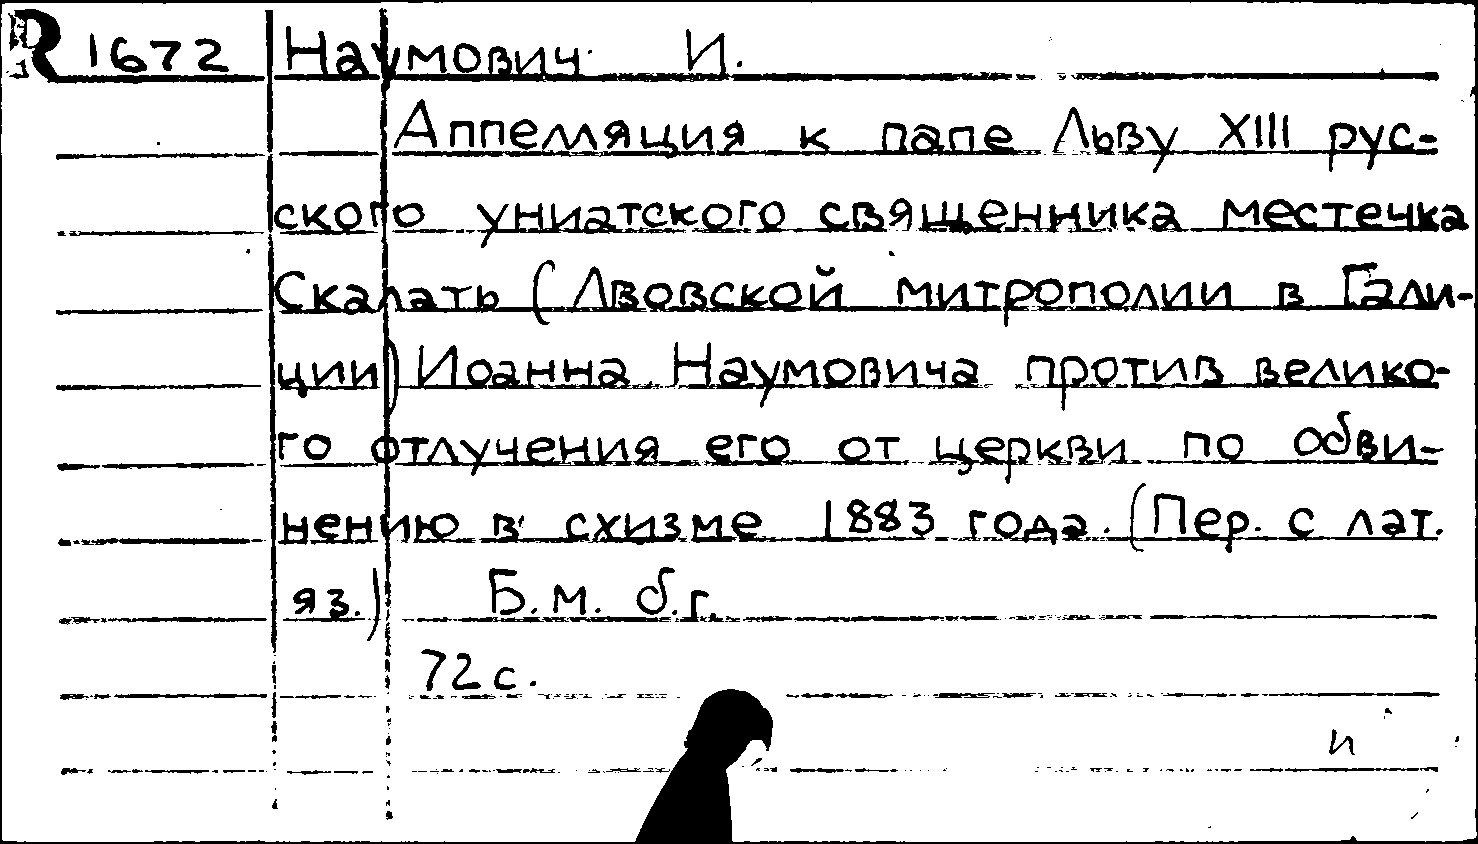 R 1672 Наумович И.
Аппелляция к папе Льву XIII рус-
ского униатского священника местечка
Скалать (Львовской митрополии в Гали-
ции) Иоанна Наумовича против велико-
го отлучения его от церкви по обви-
нению в схизме 1883 года. (Пер. с лат.
яз.) Б.м. б.г.
72 с.
и